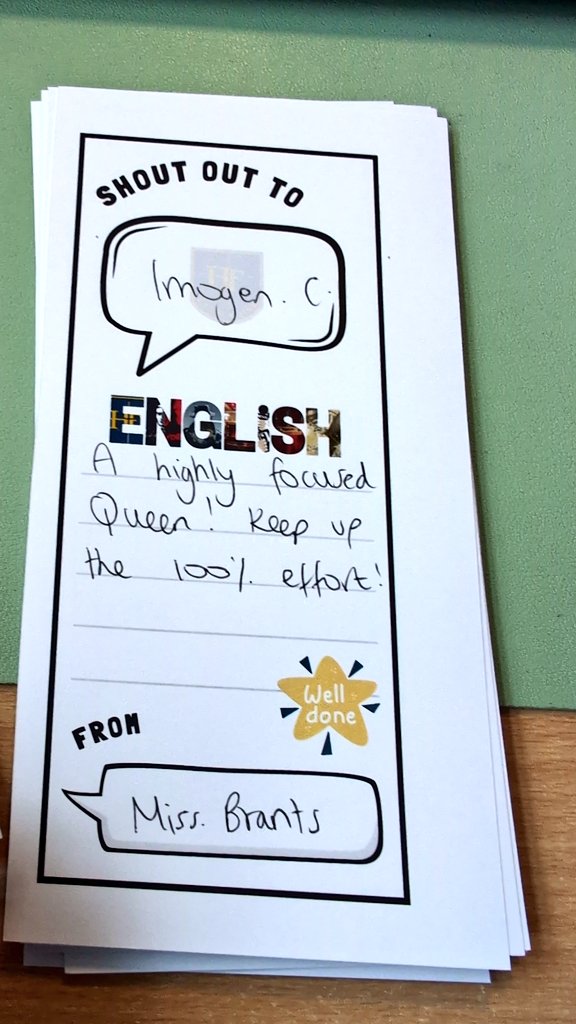 SHOUT OUT TO
Imogen. C.
ENGLISH
A highly focused
Queen! Keep up
the 100% effort!
Well
done
FROM
Miss. Brants